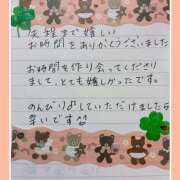 灰程まで嬉しい
お時間をありがとうございました
お時間を作り会ってくださり
まして、とても嬉しかったです。
のんびり♂していただけましたら
幸いです